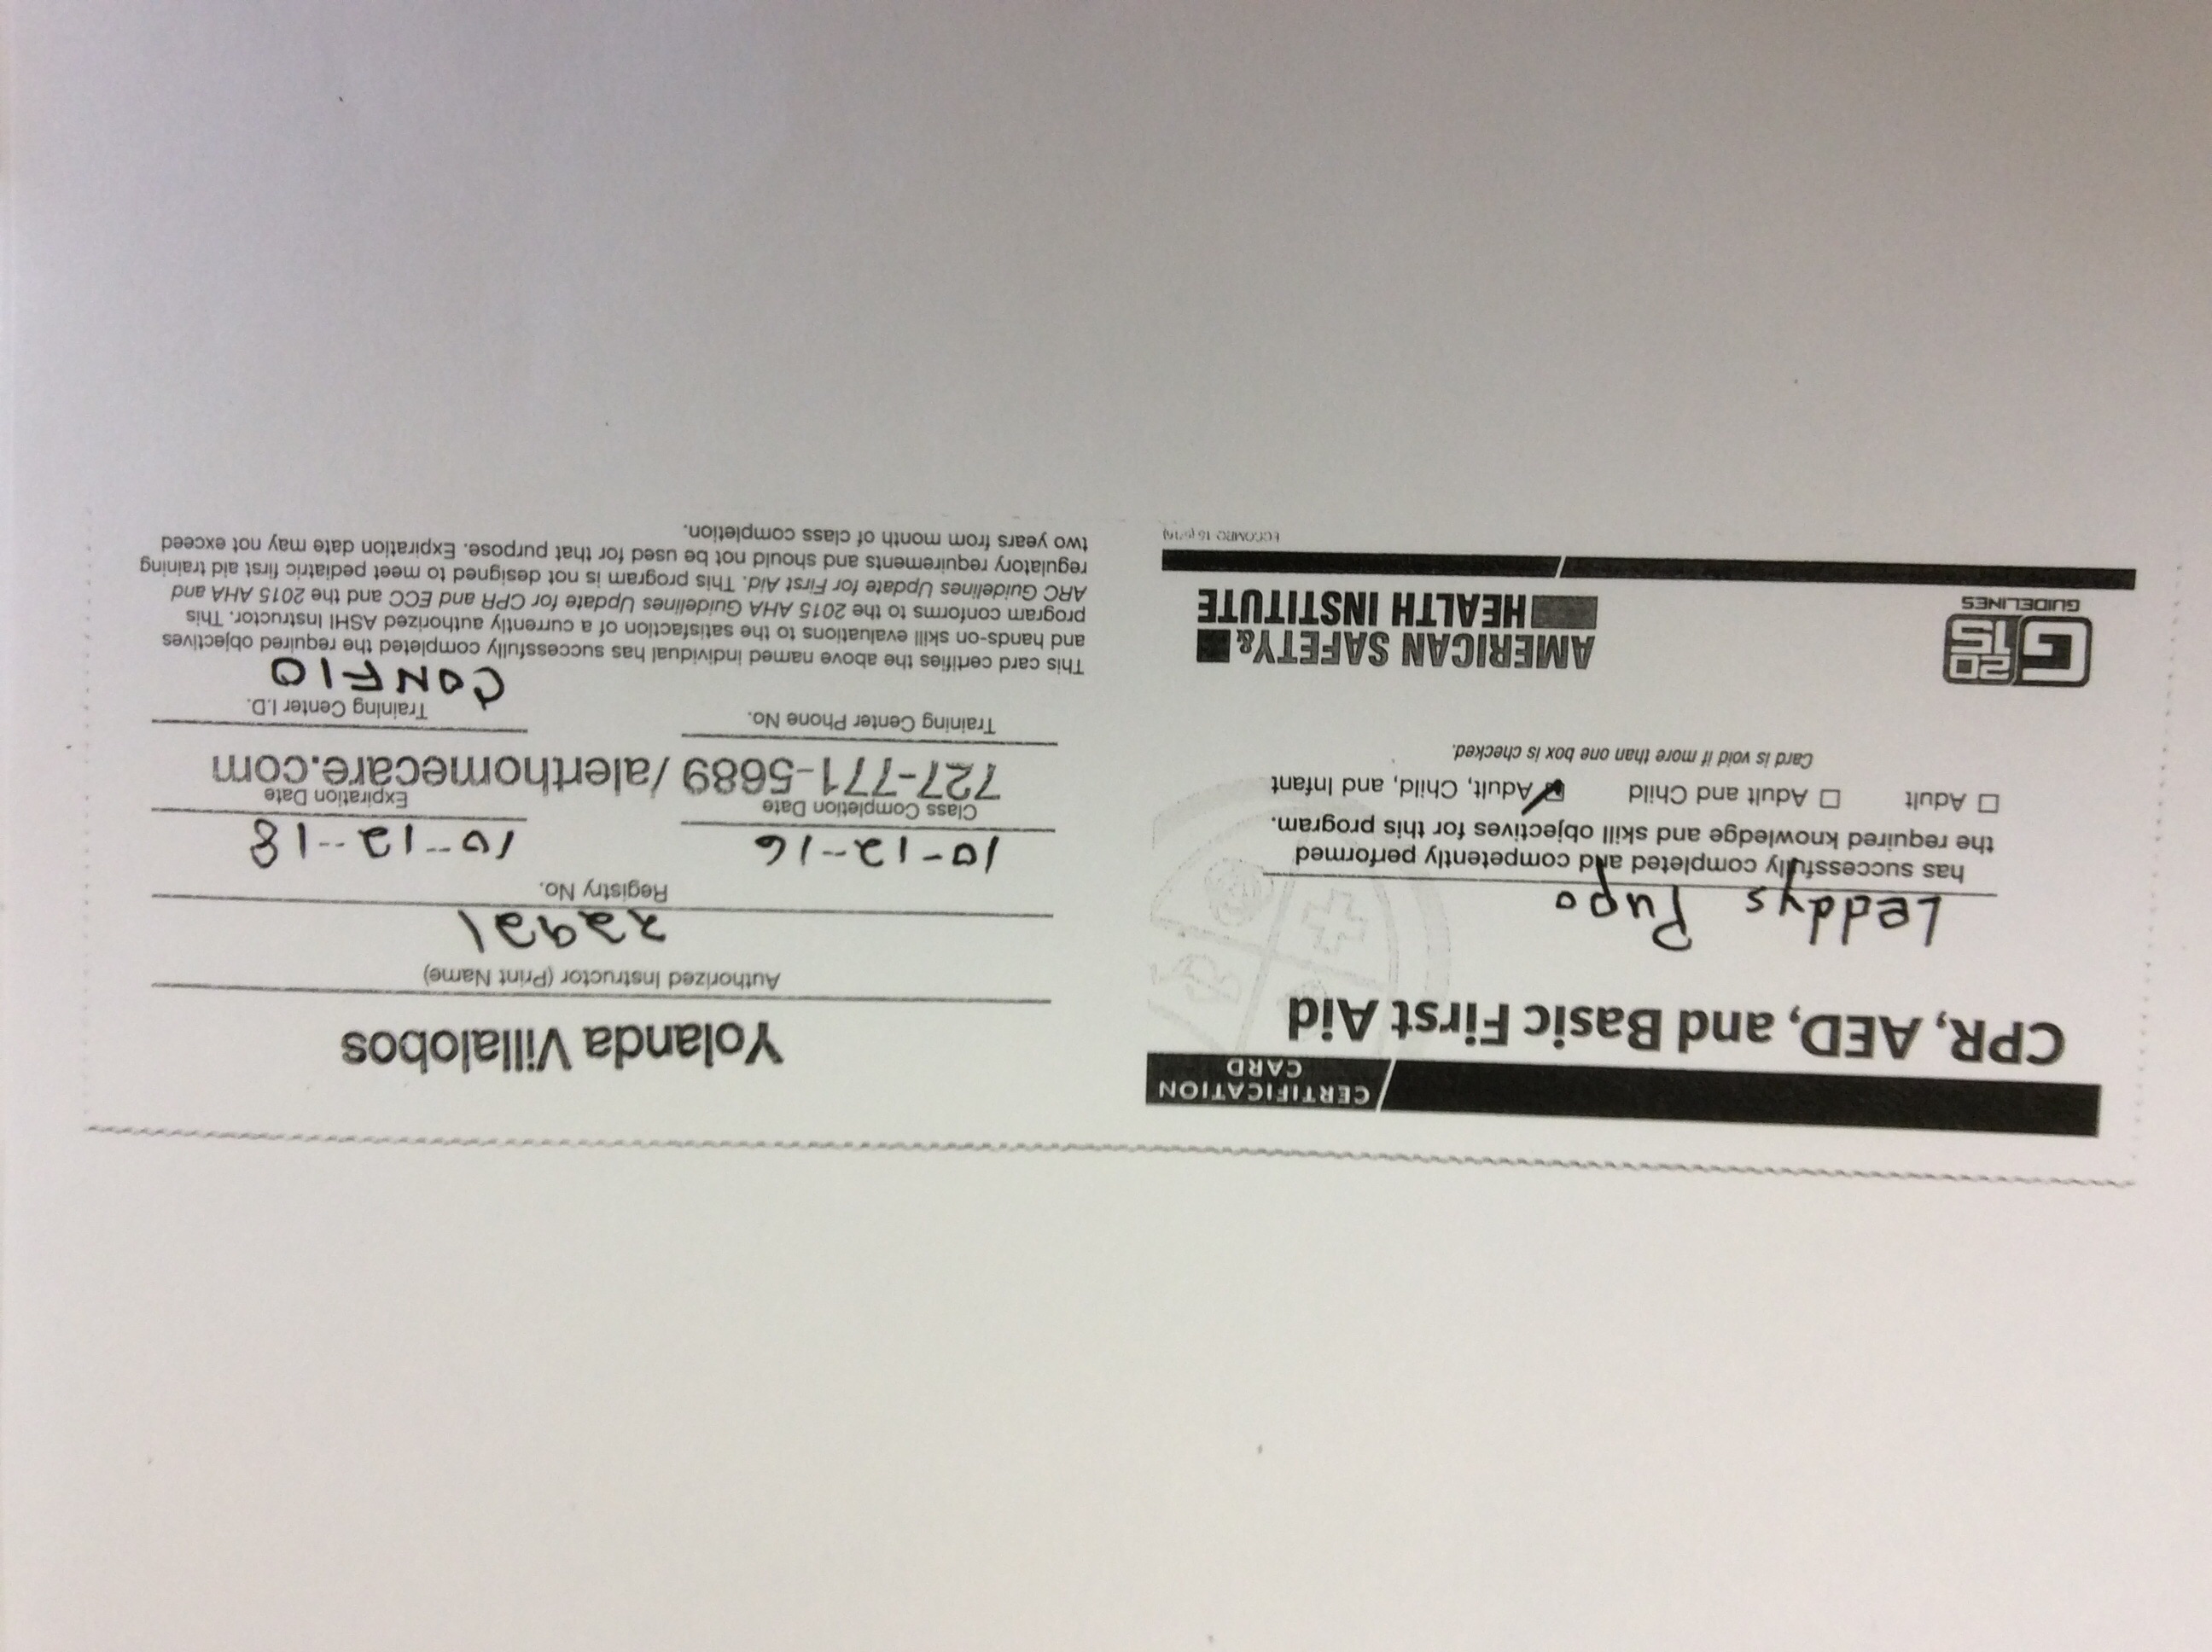 CERTIFICATION
CARD
CPR, AED, and Basic First Aid
Leddys Pupo
has successfully completed and competently performed
the required knowledge and skill objectives for this program.
☐ Adult ☐ Adult and Child ☑ Adult, Child, and Infant
Card is void if more than one box is checked.
G 2015
GUIDELINES
AMERICAN SAFETY &
HEALTH INSTITUTE
Yolanda Villalobos
Authorized Instructor (Print Name)
22921
Registry No.
10-12-16 10-12-18
Class Completion Date Expiration Date
727-771-5689 /alerthomecare.com
Training Center Phone No. Training Center I.D.
CONFIO
This card certifies the above named individual has successfully completed the required objectives
and hands-on skill evaluations to the satisfaction of a currently authorized ASHI Instructor. This
program conforms to the 2015 AHA Guidelines Update for CPR and ECC and the 2015 AHA and
ARC Guidelines Update for First Aid. This program is not designed to meet pediatric first aid training
regulatory requirements and should not be used for that purpose. Expiration date may not exceed
two years from month of class completion.